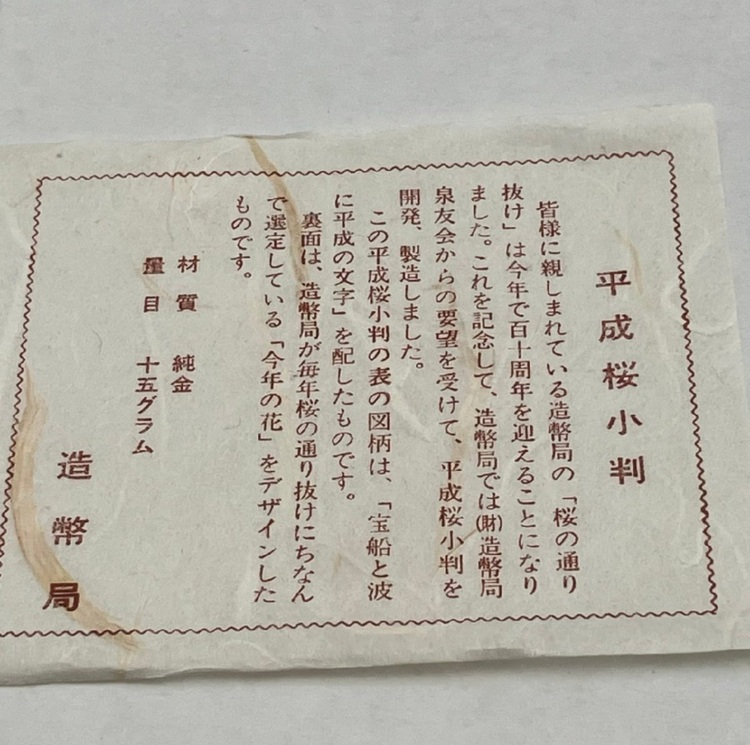 平成桜小判
皆様に親しまれている造幣局の「桜の通り
抜け」は今年で百十周年を迎えることになり
ました。これを記念して、造幣局では㈶造幣局
泉友会からの要望を受けて、平成桜小判を
開発、製造しました。
この平成桜小判の表の図柄は、「宝船と波
に平成の文字」を配したものです。
裏面は、造幣局が毎年桜の通り抜けにちなん
で選定している「今年の花」をデザインした
ものです。
材質 純金
量目 十五グラム
造幣局